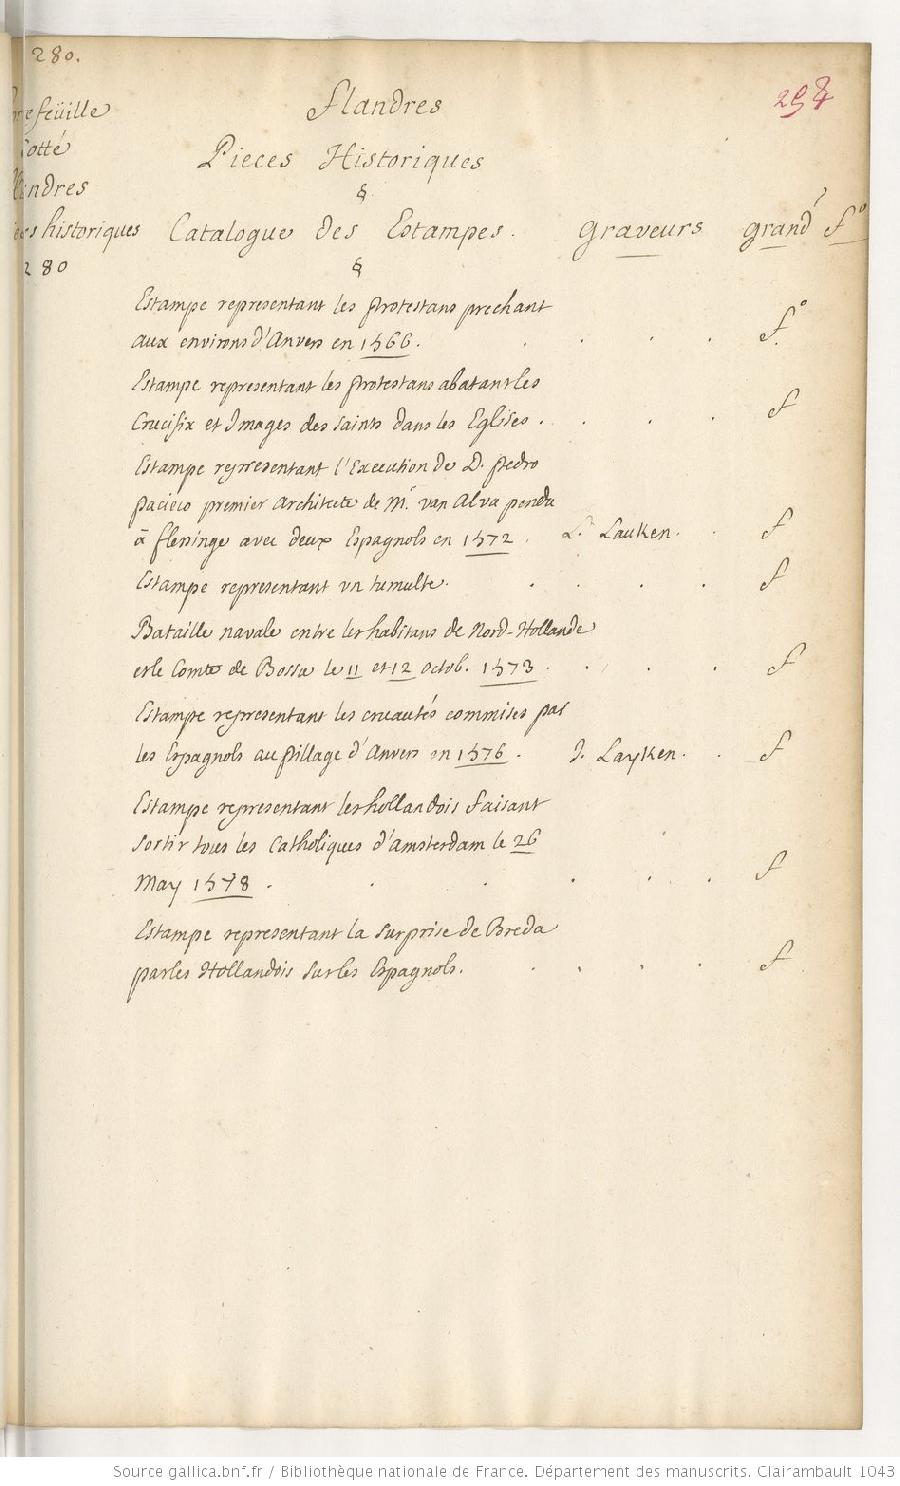 280.
257
feüille
Cotté
ndres
historiques
280
Flandres
Pieces Historiques
§
Catalogue des Estampes. graveurs grand.r f.o
§
Estampe representant les protestans prechant
aux environs d'Anvers en 1566. . . . . f.o
Estampe representant les protestans abatant les
Crucifix et Images des saints dans les Eglises. . . . f
Estampe representant l'Execution de D. pedro
pacieco premier architecte de M.r van Alva pendu
à fleninge avec deux Espagnols en 1572. L.r Lauken. . f
Estampe representant un tumulte. . . . . f
Bataille navale entre les habitans de Nord-Hollande
et le Comte de Bossa le 11 et 12 octob. 1573. . . . f
Estampe representant les cruautés commises par
les Espagnols au pillage d'Anvers en 1576. J. Layken. . f
Estampe representant les hollandois faisant
sortir tous les Catholiques d'amsterdam le 26
May 1578. . . . . . f
Estampe representant la surprise de Breda
par les Hollandois sur les Espagnols. . . . . f
Source gallica.bnf.fr / Bibliothèque nationale de France. Département des manuscrits. Clairambault 1043